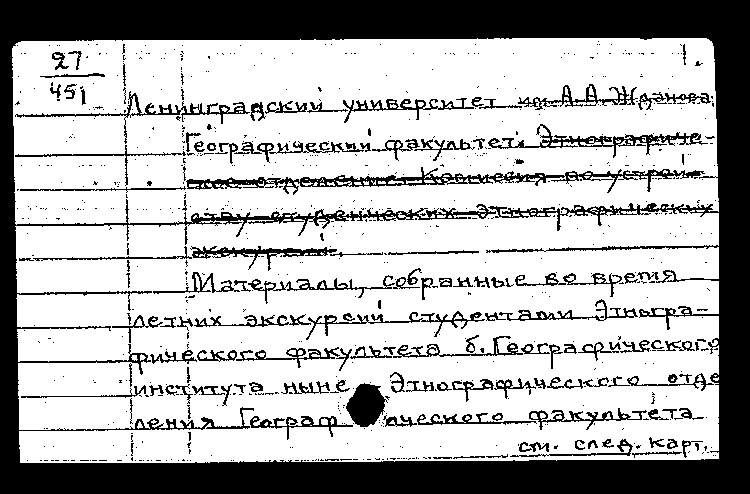 27
451
1.
Ленинградский университет им. А.А. Жданова
Географический факультет. Этнографиче-
ское отделение. Комиссия по устрой-
ству студенческих этнографических
экскурсий.
Материалы, собранные во время
летних экскурсий студентами Этногра-
фического факультета б. Географического
института ныне Этнографического отде
ления Географ ического факультета
см. след. карт.